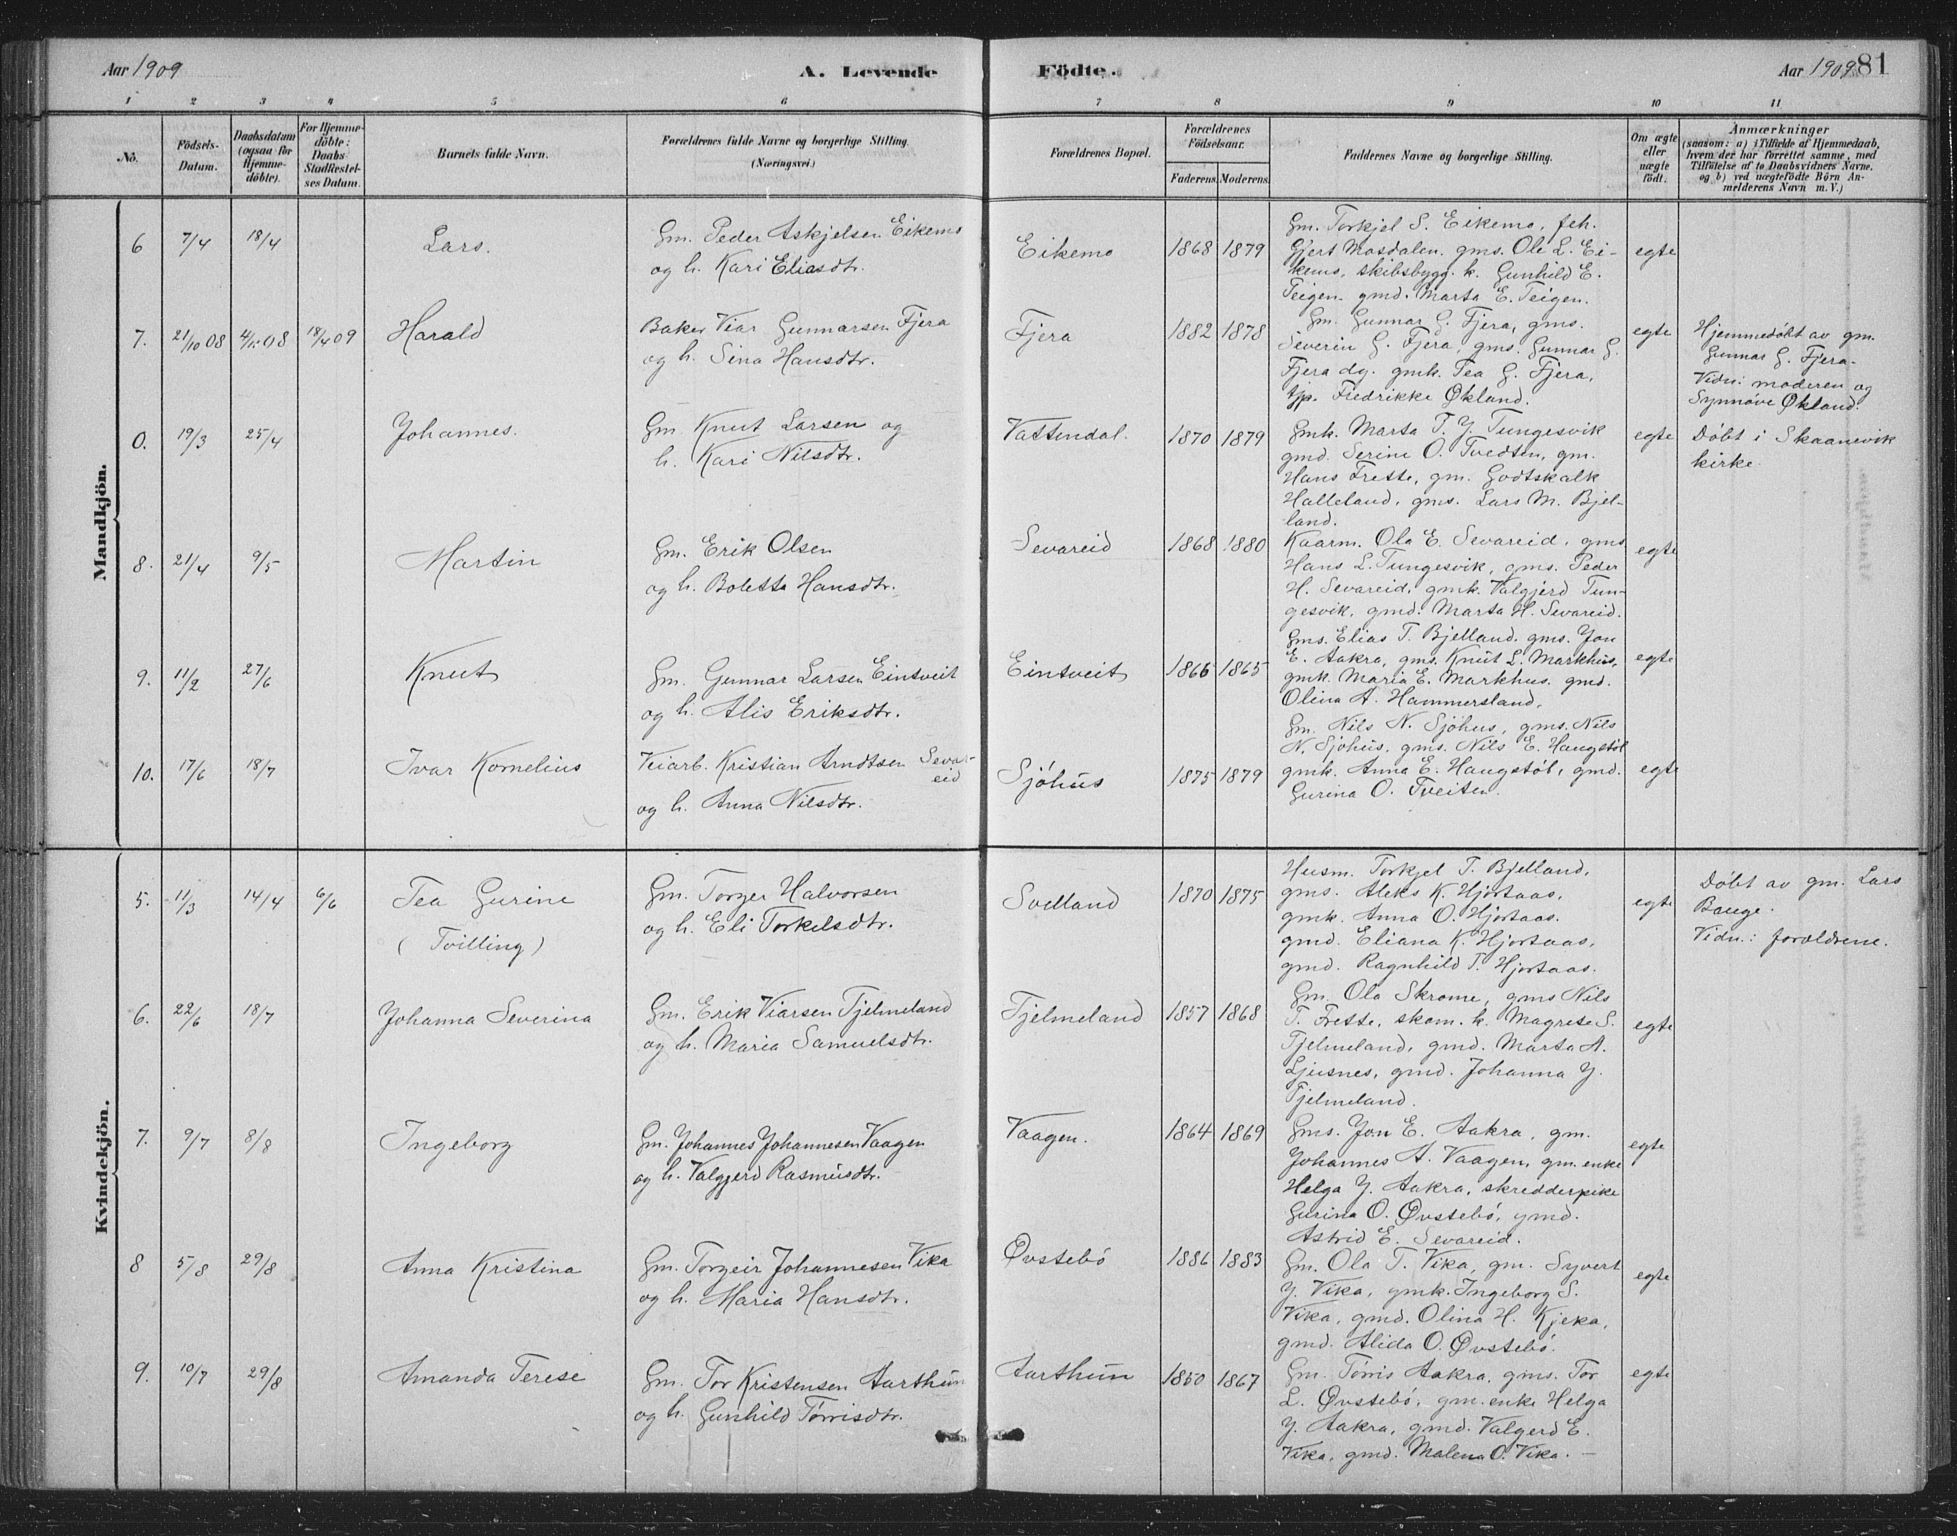 Aar 1909
A. Levende Födte.
Aar 1909 81
1 2 3 4 5 6 7 8 9 10 11
No.
Födsels-Datum.
Daabsdatum (ogsaa for Hjemme-döbte).
For Hjemme-döbte: Daabs Stadfæstel-ses Datum.
Barnets fulde Navn.
Forældrenes fulde Navne og borgerlige Stilling. (Næringsvei.)
Forældrenes Bopæl.
Forældrenes Födselsaar.
Faderens. Moderens.
Faddernes Navne og borgerlige Stilling.
Om ægte eller uægte født.
Anmærkninger
(saasom: a) i Tilfælde af Hjemmedaab,
hvem der har forrettet samme, med
Tilföielse af to Daabsvidners Navne.
og b) ved uægtefödte Börn An-
melderens Navn m. V.)
Mandkjön.
6 7/4 18/4 Lars. Gm. Peder Askjelsen Eikemo
og h. Kari Eliasdtr.
Eikemo 1868 1879
Gm. Torkjel S. Eikemo, feh.
Gjert Mosdalen. gms. Ole L. Ei-
kemo, skibsbygg. k. Gunhild E.
Teigen. gmd. Marta E. Teigen.
egte
7. 21/10 08 4/11 08 18/4 09 Harald Baker Viar Gunnarsen Fjera
og h. Sina Hansdtr.
Fjera 1882 1878
Gm. Gunnar G. Fjera, gms.
Severin G. Fjera, gms. Gunnar G.
Fjera dg. gmk. Tea G. Fjera,
tjp. Fredrikke Økland.
egte
Hjemmedøbt av gm.
Gunnar G. Fjera.
Vidn: moderen og
Synnøve Økland.
0. 19/3 25/4 Johannes. Gm. Knut Larsen og
h. Kari Nilsdtr.
Vattendal. 1870 1879
Gmk. Marta T. Y. Tungesvik
gmd. Serine O. Tvedten, gm.
Hans Frette, gm. Godtskalk
Halleland, gms. Lars M. Bjel-
land.
egte
Døbt i Skaanevik
kirke.
8. 21/4 9/5 Martin Gm. Erik Olsen
og h. Bolette Hansdtr.
Sevareid 1868 1880
Kaarm. Ola E. Sevareid, gms
Hans L. Tungesvik, gms. Peder
H. Sevareid, gmk. Valgjerd Tun-
gesvik, gmd. Marta H. Sevareid.
egte
9. 11/2 27/6 Knut Gm. Gunnar Larsen Eintveit
og h. Alis Eriksdtr.
Eintveit 1866 1865
Gms. Elias T. Bjelland. gms. Jon
E. Aakra, gms. Knut L. Markhus,
gmk. Maria E. Markhus. gmd.
Olina A. Hammersland.
egte
10. 17/6 18/7 Ivar Kornelius Veiarb. Kristian Arndtsen Sevar-
eid
og h. Anna Nilsdtr.
Sjøhus 1875 1879
Gm. Nils N. Sjøhus, gms. Nils
N. Sjøhus, gms. Nils E. Haugstøl
gmk. Anna E. Haugstøl, gmd.
Gurina O. Tveiten.
egte
Kvindekjön.
5. 11/3 14/4 6/6 Tea Gurine
(Tvilling)
Gm. Torger Halvorsen
og h. Eli Torkelsdtr.
Svelland 1870 1875
Husm. Torkjel T. Bjelland,
gms. Aleks K. Hjortaas,
gmk. Anna O. Hjortaas.
gmd. Eliana K. Hjortaas,
gmd. Ragnhild T. Hjortaas.
egte
Døbt av gm. Lars
Bauge.
Vidn.: forældrene.
6. 22/6 18/7 Johanna Severina Gm. Erik Viarsen Tjelmeland
og h. Maria Samuelsdtr.
Tjelmeland 1857 1868
Gm. Ola Skrome, gms Nils
T. Frette, skom. k. Magrete S.
Tjelmeland, gmd. Marta A.
Ljusnes, gmd. Johanna Y.
Tjelmeland.
egte
7. 9/7 8/8 Ingeborg Gm. Johannes Johannesen Vaagen
og h. Valgjerd Rasmusdtr.
Vaagen. 1864 1869
Gms. Jon E. Aakra, gm.
Johannes A. Vaagen, gm. enke
Helga Y. Aakra, skredderpike
Gurina O. Øvstebø, gmd.
Astrid E. Sevareid.
egte
8 5/8 29/8 Anna Kristina Gm. Torgeir Johannesen Vika
og h. Maria Hansdtr.
Øvstebø 1886 1883
Gm. Ola T. Vika, gm. Syvert
Y. Vika, gmk. Ingeborg S.
Vika, gmd. Olina H. Kjeka,
gmd. Alida O. Øvstebø.
egte
9. 10/7 29/8 Amanda Terese Gm. Tor Kristensen Aarthun
og h. Gunhild Tørrisdtr.
Aarthun 1850 1867
Gm. Tørris Aakra, gms. Tor
L. Øvstebø, gm. enke Helga
Y. Aakra, gmd. Valgerd E.
Vika, gmd. Malena O. Vika.
egte